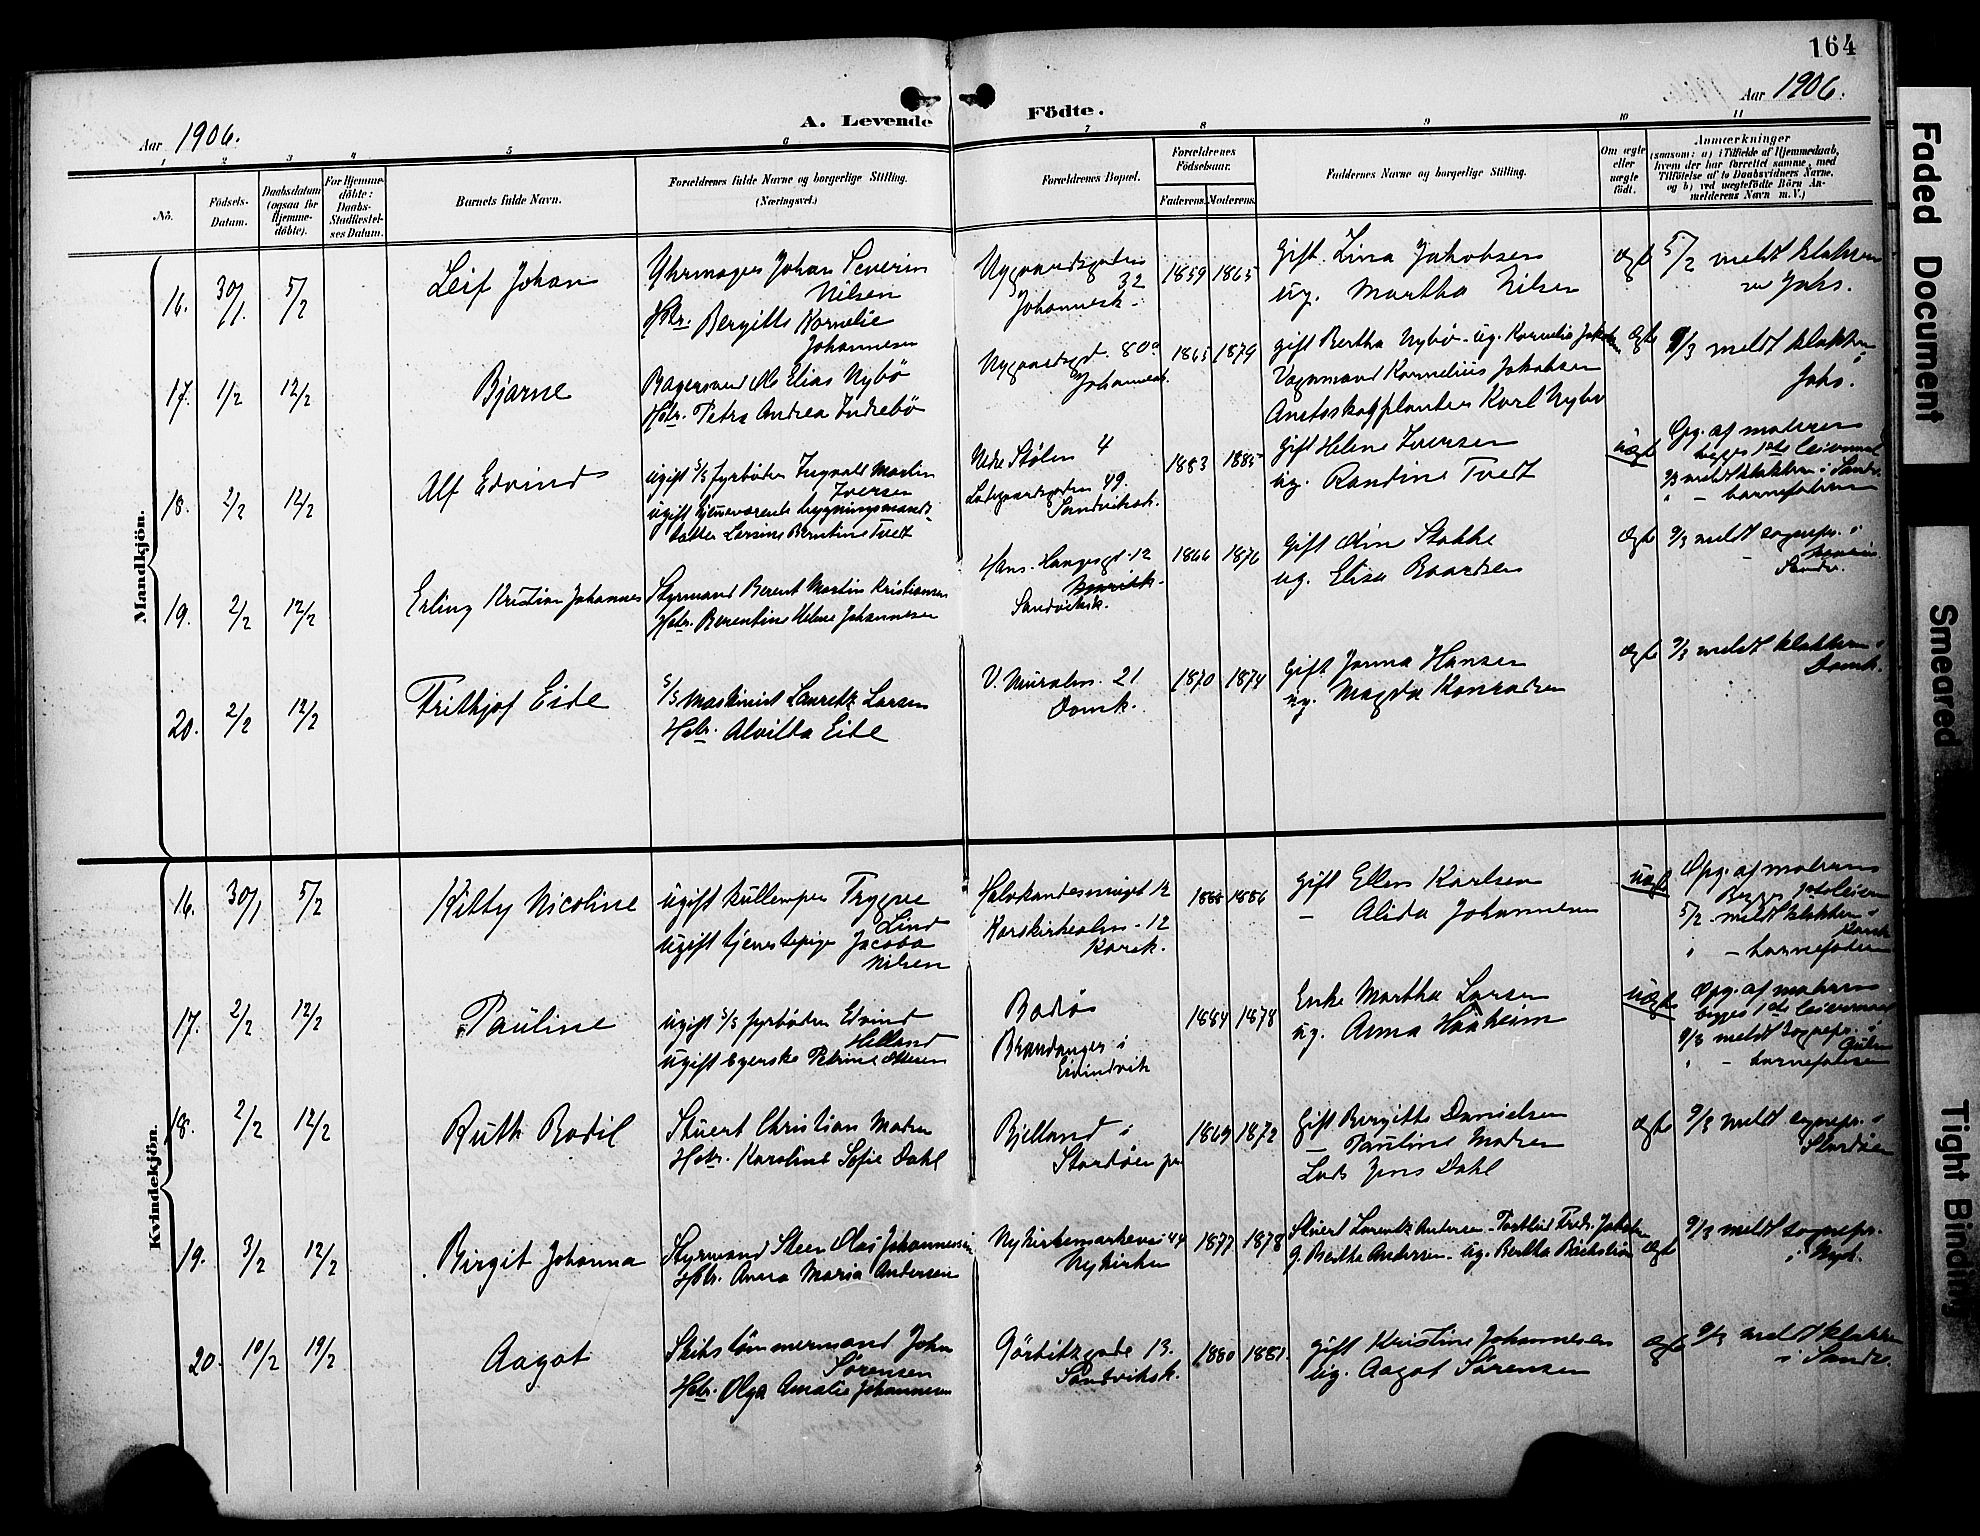 164
Aar 1906.
Aar 1906.
A. Levende Födte.
1 2 3 4 5 6 7 8 9 10 11
No.
Födsels-Datum.
Daabsdatum (ogsaa for Hjemme-döbte).
For Hjemme-döbte: Daabs-Stadfæstel-ses Datum.
Barnets fulde Navn.
Forældrenes fulde Navne og borgerlige Stilling.
(Næringsvei.)
Forældrenes Bopæl.
Forældrenes Födselsaar.
Faderens. Moderens.
Faddernes Navne og borgerlige Stilling.
Om ægte eller uægte födt.
Anmærkninger
(saasom: a) i Tilfælde af Hjemmedaab,
hvem der har forrettet samme, med
Tilföielse af to Daabsvidners Navne,
og b) ved uægtefödte Börn An-
melderens Navn m. V.)
Mandkjön.
16. 30/1. 5/2 Leif Johan
Uhrmager Johan Severin
Nilsen
Hstr. Bergitte Kornelie
Johannesen
Nygaardsgaten
32
Johannesk.
1859 1865
Gift Lina Jakobsen
ug. Martha Nilsen
ægte
5/2 meldt klokkeren
Johs.
17. 1/2 12/2 Bjarne
Bagersvend Ole Elias Nybö
Hstr. Petra Andrea Indrebö
Nygaardsgt. 80a
Johannesk.
1865 1879
gift Bertha Nybö - ug. Kornelia
Vognmand Kornelius Jakobsen
Karl Nybö
ægte
9/3 meldt klokken i
Johs.
18. 2/2 12/2 Alf Edvind
ugift S/S fyrböder Ingvald Martin
Iversen
ugift hjemmeværende bygningsmands-
datter Larsine Berntine Tvedt
Nedre Stölen 4
49.
Sandviksk.
1883 1885
gift Helene Iversen
ug. Randine Tvedt
uægte
Opg. af moderen
begges 1ste leiermaal
9/3 meldt klokkeren i Sandv.
" — barnefaderen
19. 2/2 12/2 Erling Kristian Johannes
Styrmand Berent Martin Kristiansen
Hstr. Berentine Helene Johannesen
Hans Haugesgt. 12
Sandviksk.
1866 1876
gift Stokke
ug. Elisa Baardsen
ægte
9/3 meldt sognepr. i
Sandv.
20. 2/2 12/2 Frithjof Eide
S/S maskinist Lauritz Larsen
Hstr. Alvilda Eide
V. Muralm. 21
Domk.
1870 1874
gift Janna Hansen
ug. Magda Konradsen
ægte
9/3 meldt klokkeren i
Domk.
Kvindekjön.
16. 30/1 5/2 Kitty Nicoline
ugift kullemper Trygve
Lind
ugift tjenestepige Jacoba
Nilsen
12
Korskirkealm. 12
Korsk.
1885 1886
gift Ellen Karlsen
— Alida Johannesen
uægte
Opg. af moderen
Begges 1ste leierm.
5/2 meldt klokken i
Korsk.
" — barnefaderen
17. 2/2 12/2 Pauline
ugift S/S fyrböder Edvind
Helland
ugift syerske Petrine Ottesen
Bodö
Brandanger i
Eivindvik
1884 1878
Enke Martha Larsen
ug. Anna Haaheim
uægte
Opg. af moderen
begges 1ste leiermaal
9/3 meldt sognepr. i
Gulen
" — barnefaderen
18. 2/2 12/2 Ruth Bodil
Stuert Christian Madsen
Hstr. Karoline Sofie Dahl
Bjelland i
Stordöen
1869 1872
Gift Bergitte Danielsen
— Pauline Madsen
Lods Jens Dahl
ægte
9/3 meldt sognepr. i
Stordöen
19. 3/2 12/2 Birgit Johanna
Styrmand Steen Olai Johannessen
Hstr. Anna Maria Andersen
Nykirkemarkevei 44
Nykirken
1877 1878
Stuert Laurentz Andersen
g. Berthe Andersen. ug. Bertha
ægte
9/3 meldt sognepr.
i Nyk.
20. 10/2 19/2 Aagot
Skibstömmermand John
Sörensen
Hstr. Olga Amalie Johannesen
Görbitzgade 13.
Sandviksk.
1880 1881.
gift Kristine Johannesen
ug. Aagot Sörensen
ægte
9/3 meldt klokken
i Sandv.
Faded Document
Smeared
Tight Binding